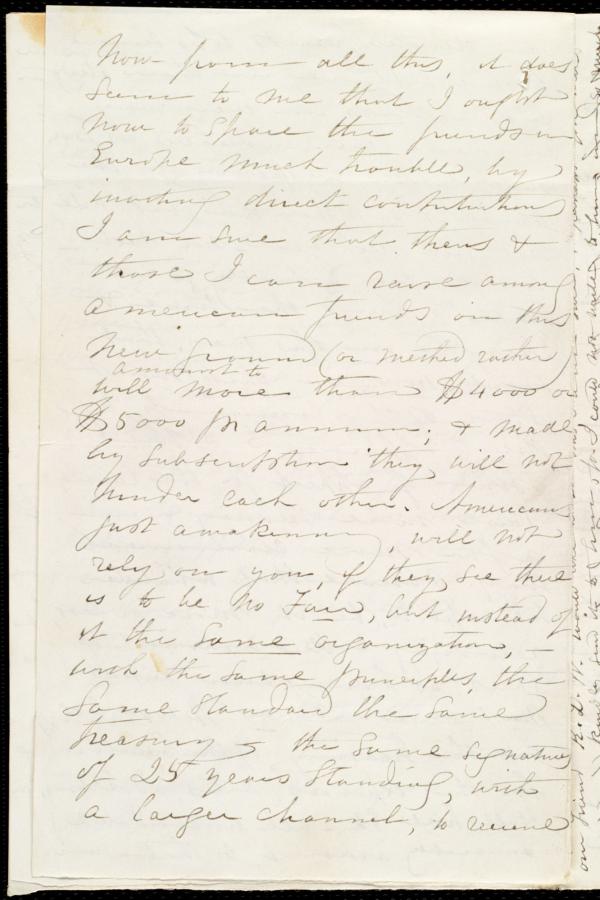 Now from all this, it does
seem to me that I ought
now to spare the friends in
Europe much trouble, by
inviting direct contributions
I am sure that theirs &
those I can raise among
American friends on this
new ground (or method rather)
amount to
will more than $4000 or
$5000 pr annum; & made
by subscription they will not
hinder each other. Americans
just awakening, will not
rely on you, if they see there
is to be no Fair, but instead of
it the same organization, —
with the same principles, the
same standard the same
treasury & the same signatures
of 25 years standing, with
a larger channel, to receive
our friend R. D. W. would
kindly send it to I could not write